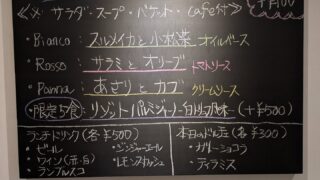 《〆 サラダ・スープ・バケット・cafe付》 +¥100
・Bianco : スルメイカと小松菜 オイルベース
・Rosso : サラミとオリーブ トマトソース
・Panna : あさりとカブ クリームソース
・限定5食 : リゾット (+¥500)
ランチドリンク(各¥500)
・ビール
・ワイン(赤・白)
・ランブルスコ
・ジンジャーエール
・レモンスカッシュ
本日のドルチェ(各¥300)
・ガトーショコラ
・ティラミス